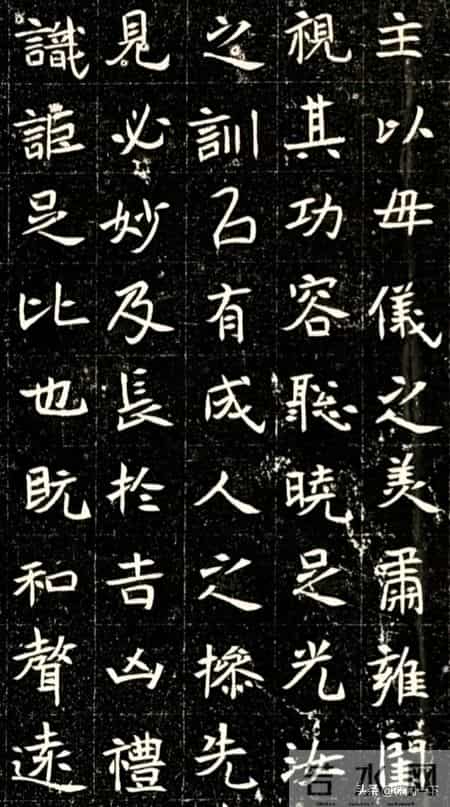 主以毋儀之美肅雍閨
視其功容聡曉是光
之訓已有成人之操先
見必妙及長於吉凶禮
識詎足比也既和聲遠
头条